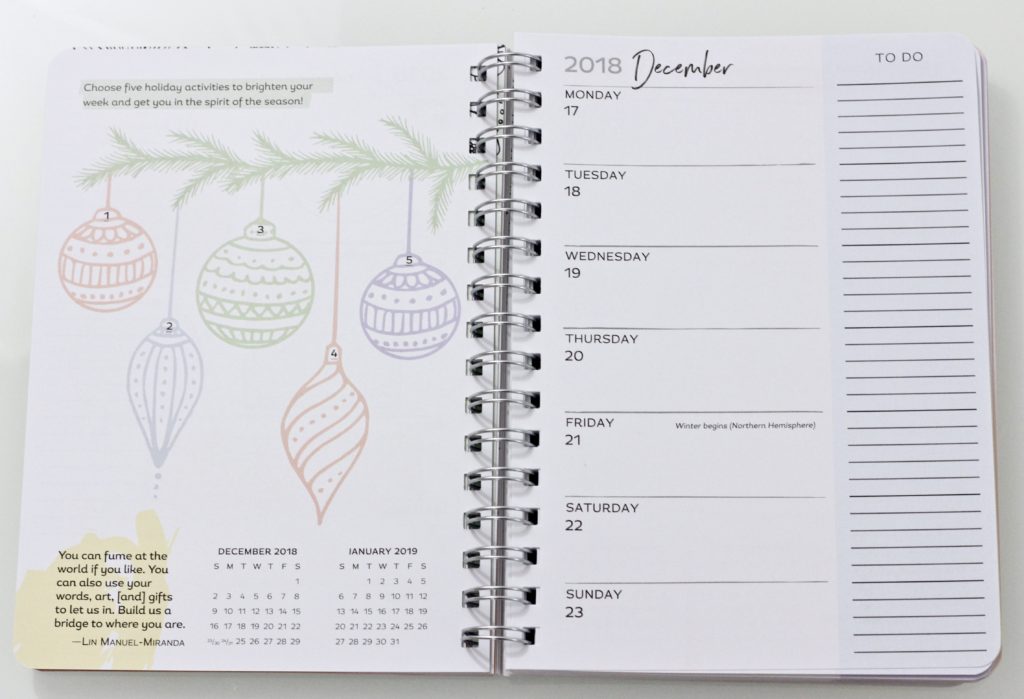 Choose five holiday activities to brighten your
week and get you in the spirit of the season!
1
2
3
4
5
You can fume at the
world if you like. You
can also use your
words, art, [and] gifts
to let us in. Build us a
bridge to where you are.
—LIN MANUEL-MIRANDA
DECEMBER 2018
S M T W T F S
1
2 3 4 5 6 7 8
9 10 11 12 13 14 15
16 17 18 19 20 21 22
23/30 24/31 25 26 27 28 29
JANUARY 2019
S M T W T F S
1 2 3 4 5
6 7 8 9 10 11 12
13 14 15 16 17 18 19
20 21 22 23 24 25 26
27 28 29 30 31
2018 December
MONDAY
17
TUESDAY
18
WEDNESDAY
19
THURSDAY
20
FRIDAY
21
Winter begins (Northern Hemisphere)
SATURDAY
22
SUNDAY
23
TO DO